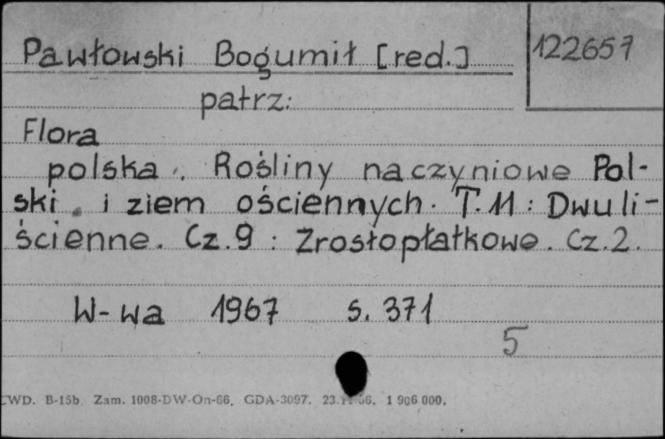 Pawłowski Bogumił [red.]
122657
patrz:
Flora
polska. Rośliny naczyniowe Pol-
ski i ziem ościennych. T.11: Dwuli-
ścienne. Cz.9: Zrosłopłatkowe. Cz.2.
W-wa 1967 s. 371
5
CWD. B-15b. Zam. 1008-DW-On-66. GDA-3097. 1 906 000.